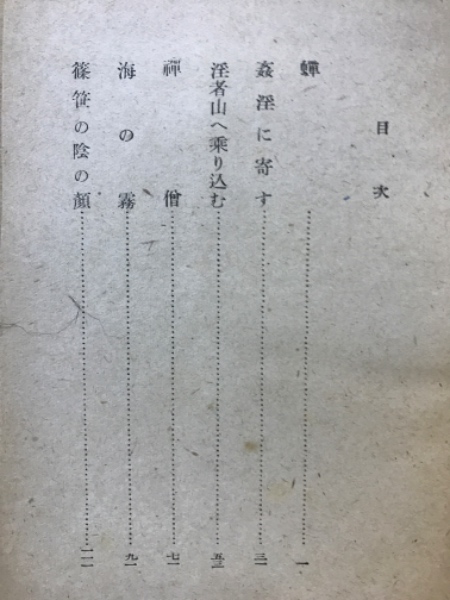 目次
蟬……一
姦淫に寄す……三一
淫者山へ乗り込む……五三
禪僧……七一
海の霧……九一
篠笹の陰の顔……一一一